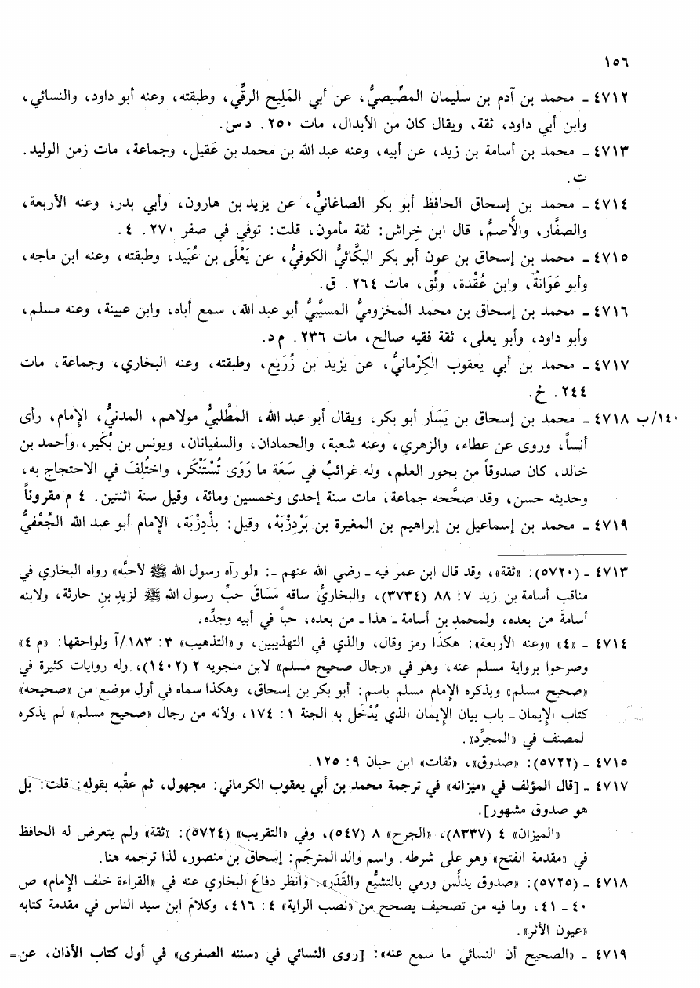 ١٥٦
٤٧١٢ ـ محمد بن آدم بن سليمان المصِّيصيُّ، عن أبي المَلِيح الرقِّي، وطبقته، وعنه أبو داود، والنسائي،
وابن أبي داود، ثقة، ويقال كان من الأبدال، مات ٢٥٠. د س.
٤٧١٣ ـ محمد بن أسامة بن زيد، عن أبيه، وعنه عبد الله بن محمد بن عَقيل، وجماعة، مات زمن الوليد.
ت.
٤٧١٤ ـ محمد بن إسحاق الحافظ أبو بكر الصاغانيُّ، عن يزيد بن هارون، وأبي بدر، وعنه الأربعة،
والصفَّار، والأصمُّ، قال ابن خِراش: ثقة مأمون، قلت: توفي في صفر ٢٧٠. ٤.
٤٧١٥ ـ محمد بن إسحاق بن عون أبو بكر البكَّائيُّ الكوفيُّ، عن يَعْلَى بن عُبَيد، وطبقته، وعنه ابن ماجه،
وأبو عَوَانةَ، وابن عُقْدة، وثِّق، مات ٢٦٤. ق.
٤٧١٦ ـ محمد بن إسحاق بن محمد المخزوميُّ المسيَّبيُّ أبو عبد الله، سمع أباه، وابن عيينة، وعنه مسلم،
وأبو داود، وأبو يعلى، ثقة فقيه صالح، مات ٢٣٦. م د.
٤٧١٧ ـ محمد بن أبي يعقوب الكِرْمانيُّ، عن يزيد بن زُرَيع، وطبقته، وعنه البخاري، وجماعة، مات
٢٤٤. خ.
١٤٠/ب ٤٧١٨ ـ محمد بن إسحاق بن يَسَار أبو بكر، ويقال أبو عبد الله، المطَّلبيُّ مولاهم، المدنيُّ، الإمام، رأى
أنساً، وروى عن عطاء، والزهري، وعنه شعبة، والحمادان، والسفيانان، ويونس بن بُكَير، وأحمد بن
خالد، كان صدوقاً من بحور العلم، وله غرائبُ في سَعَة ما رَوَى تُسْتَنْكَر، واختُلِف في الاحتجاج به،
وحديثه حسن، وقد صحَّحه جماعة، مات سنة إحدى وخمسين ومائة، وقيل سنة اثنتين. ٤ م مقروناً
٤٧١٩ ـ محمد بن إسماعيل بن إبراهيم بن المغيرة بن بَرْدِزْبَهْ، وقيل: بَذْدِزْبَهْ، الإمام أبو عبد الله الجُعْفيُّ
٤٧١٣ ـ (٥٧٢٠): «ثقة»، وقد قال ابن عمر فيه ـ رضي الله عنهم ـ: «لو رآه رسول الله ﷺ لأحبَّه» رواه البخاري في
مناقب أسامة بن زيد ٧: ٨٨ (٣٧٣٤)، والبخاريُّ ساقه مَسَاقَ حبِّ رسول الله ﷺ لزيد بن حارثة، ولابنه
أسامةَ من بعده، ولمحمدِ بن أسامة ـ هذا ـ من بعده، حباً في أبيه وجدِّه.
٤٧١٤ ـ «٤» «وعنه الأربعة»: هكذا رمز وقال، والذي في التهذيبين، و«التذهيب» ٣: ١٨٣/آ ولواحقها: «م ٤»
وصرحوا برواية مسلم عنه، وهو في «رجال صحيح مسلم» لابن منجويه ٢ (١٤٠٢)، وله روايات كثيرة في
«صحيح مسلم» ويذكره الإمام مسلم باسم: أبو بكر بن إسحاق، وهكذا سماه في أول موضع من «صحيحه»
كتاب الإيمان ـ باب بيان الإيمان الذي يُدْخَل به الجنة ١: ١٧٤، ولأنه من رجال «صحيح مسلم» لم يذكره
لمصنف في «المجرَّد».
٤٧١٥ ـ (٥٧٢٢): «صدوق»، «ثقات» ابن حبان ٩: ١٢٥.
٤٧١٧ ـ [قال المؤلف في «ميزانه» في ترجمة محمد بن أبي يعقوب الكرماني: مجهول، ثم عقَّبه بقوله: قلت: بل
هو صدوق مشهور].
«الميزان» ٤ (٨٣٣٧)، «الجرح» ٨ (٥٤٧)، وفي «التقريب» (٥٧٢٤): «ثقة» ولم يتعرض له الحافظ
في «مقدمة الفتح» وهو على شرطه. واسم والد المترجَم: إسحاق بن منصور، لذا ترجمه هنا.
٤٧١٨ ـ (٥٧٢٥): «صدوق يدلِّس ورمي بالتشيُّع والقَدَر». وانظر دفاع البخاري عنه في «القراءة خلف الإمام» ص
٤٠ ـ ٤١، وما فيه من تصحيف يصحح من «نصب الراية» ٤: ٤١٦، وكلام ابن سيد الناس في مقدمة كتابه
«عيون الأثر».
٤٧١٩ ـ «الصحيح أن النسائي ما سمع عنه»: [روى النسائي في «سننه الصغرى» في أول كتاب الأذان، عن=